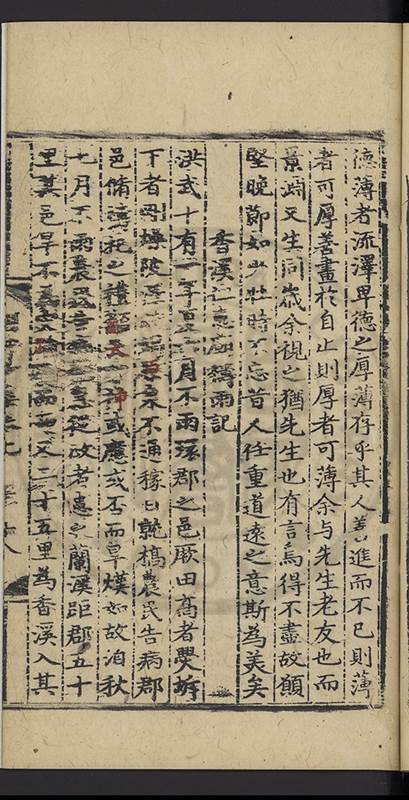 德薄者流澤卑德之厚薄存乎其人善進而不已則薄
者可厚善畫於自止則厚者可薄余与先生老友也而
景淵又生同歲余視之猶先生也有言焉得不盡故願
堅晚節如少壯時不忘昔人任重道遠之意斯為美矣
香溪仁惠廟禱雨記
洪武十有一年夏六月不雨溪郡之邑厥田髙者㸑坼
下者燥陂泉不涌稼日就槁農民告病郡
邑脩之禮天神或應或否而旱熯如故洎秋
七月不雨農從政者患之蘭溪距郡五十
里其邑旱不又二十五里為香溪入其